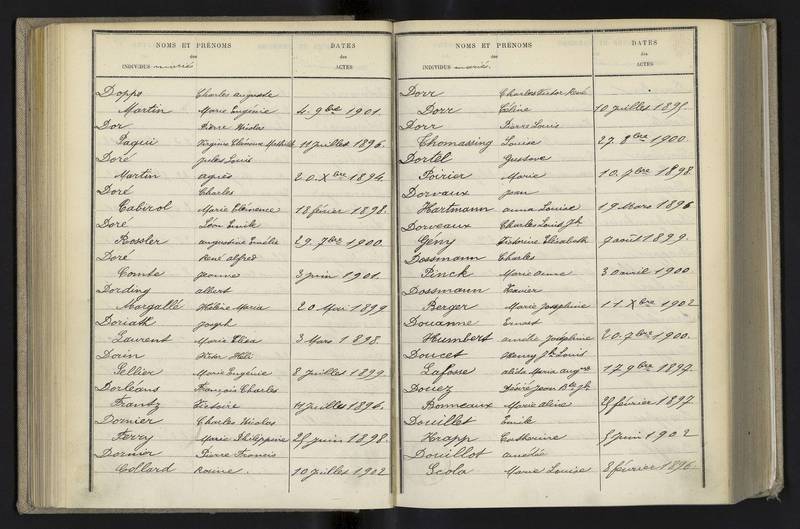 NOMS ET PRÉNOMS
des
INDIVIDUS marié
DATES
des
ACTES
Doppo Charles Auguste
Martin Marie Eugénie 4. 9bre 1901.
Dor Pierre Nicolas
Paquii Virginie Clémence Mathilde 11 Juillet 1896.
Doré Jules Louis
Martin Agnès 20. Xbre 1894.
Doré Charles
Cabirol Marie Clémence 18 février 1898.
Doré Léon Emile
Rossler Augustine Emélie 29. 7bre 1900.
Doré René Alfred
Comte Jeanne 3 juin 1901.
Dording Albert
Margallé Hélène Maria 20 Mai 1899
Doriath Joseph
Laurent Marie Elisa 3 Mars 1898.
Dorin Victor
Sellier Marie Eugénie 8 Juillet 1899
Dorléans François Charles
Frantz Victoire 11 Juillet 1896.
Dornier Charles Nicolas
Ferry Marie Philippine 25 juin 1898.
Dornier Pierre Francis
Collard Rosine. 10 Juillet 1902
NOMS ET PRÉNOMS
des
INDIVIDUS marié.
DATES
des
ACTES
Dorr Charles Victor René
Dorr Céline 10 Juillet 1895
Dorr Pierre Louis
Thomassing Louise 27. 8bre 1900.
Dortel Gustave
Poirier Marie 10. 7bre 1898.
Dorvaux Jean
Hartmann Anna Louise 19 Mars 1896
Dorveaux Charles Louis Jh
Gény Victorine Elisabeth 9 août 1899.
Dossmann Charles
Pinck Marie Anne 30 avril 1900
Dossmann Xavier
Berger Marie Joséphine 11 Xbre 1902
Douanne Ernest
Humbert Amélie Joséphine 20. 7bre 1900.
Doucet Henry Jh Louis
Lafosse Alida Maria Augne 17 9bre 1897.
Douez Désiré Jean Bte Jh
Bonneaux Marie Aline 25 février 1897
Douillet Emile
Krapp Catherine 5 juin 1902
Douillot Amédée
Scola Marie Louise 8 février 1896